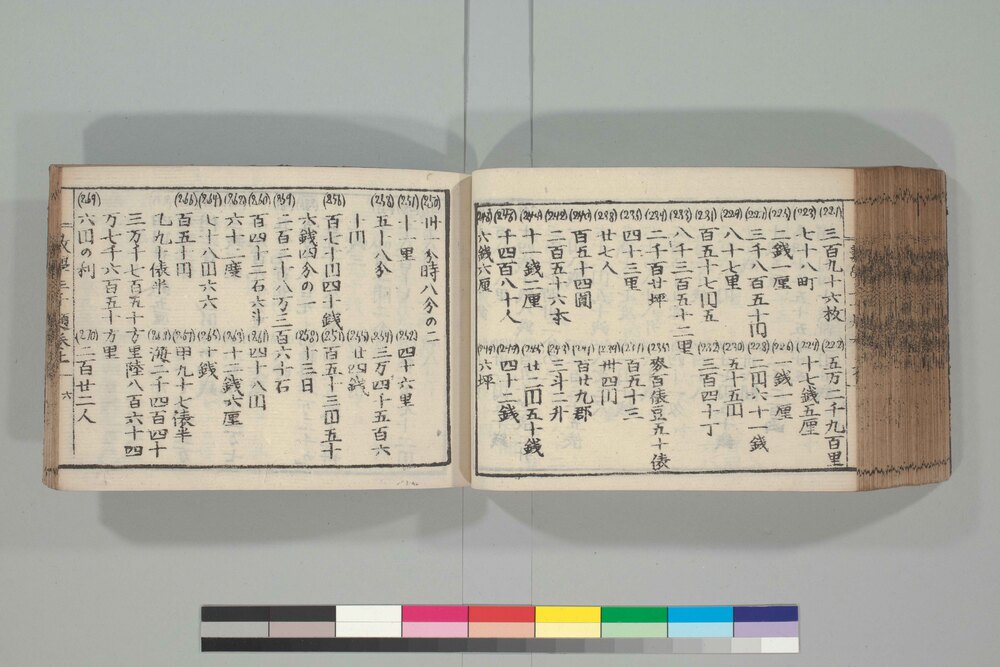 (221) 三百九十六枚 (222) 五万二千九百里
(223) 七十八町 (224) 十七銭五厘
(225) 二銭一厘 (226) 銭一厘
(227) 三千八百五十円 (228) 二円六十一銭
(229) 八十七里 (230) 五十五円
(231) 百五十七円五 (232) 三百四十丁
(233) 八千三百五十二里
(234) 二千百廿坪 (235) 麥百俵豆五十俵
(236) 四十三里 (237) 百五十三
(238) 廿七人 (239) 卅四円
(240) 百五十四圓 (241) 百廿九郡
(242) 二百五十六本 (243) 三斗二升
(244) 十一銭二厘 (245) 廿二円五十銭
(246) 千四百八十人 (247) 四十二銭
(248) 六銭六厘 (249) 六坪
(250) 卅一分時八分の二
(251) 十一里 (252) 四十六里
(253) 五十八分 (254) 三万四十五百六
十円 廿四銭
(256) 百七十円四十銭 (257) 百五十三円五十
六銭四分の一 (258) 十三日
(259) 二百二十八万三百六十石
(260) 百四十二石六斗 (261) 四十八円
(262) 六十一疊 (263) 十二銭六厘
(264) 七十八円六六 (265) 十銭
(266) 百五十円 (267) 甲九十七俵半
乙九十俵半 (268) 海二千四百四十
三万千七百五十方里陸八百六十四
万七千六百五十方里
(269) 六円の利 (270) 二百廿二人
六